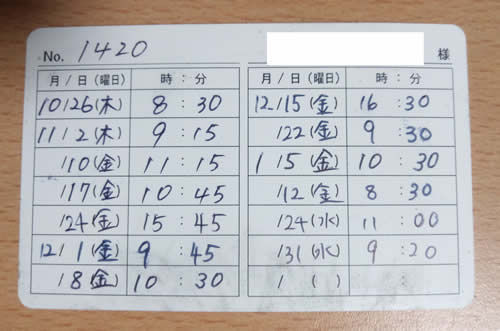 No. 1420
様
月/日(曜日) 時:分
10/26(木) 8:30
11/2(木) 9:15
/10(金) 11:15
/17(金) 10:45
/24(金) 15:45
12/1(金) 9:45
/8(金) 10:30
月/日(曜日) 時:分
12/15(金) 16:30
/22(金) 9:30
1/5(金) 10:30
/12(金) 8:30
/24(水) 11:00
/31(水) 9:20
/ ( ) :